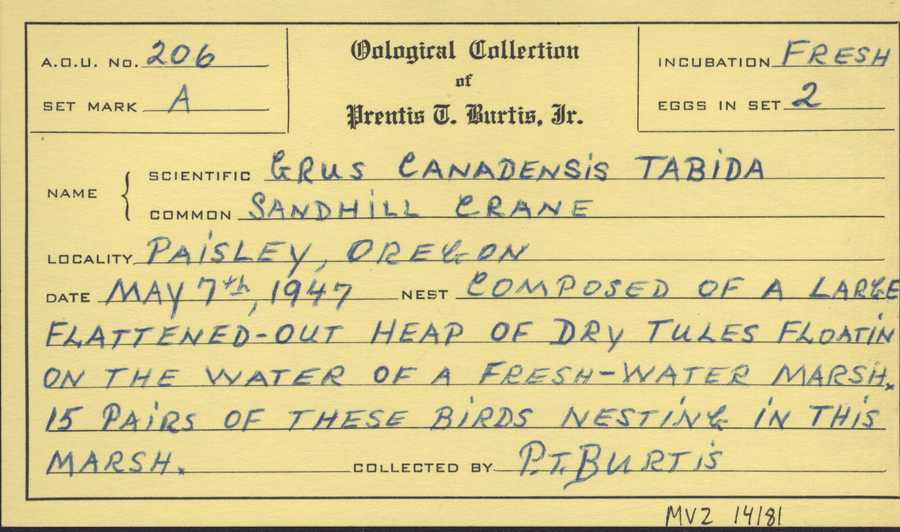 A.O.U. No. 206
SET MARK A
Oological Collection
of
Prentis T. Burtis, Jr.
INCUBATION FRESH
EGGS IN SET 2
NAME
SCIENTIFIC GRUS CANADENSIS TABIDA
COMMON SANDHILL CRANE
LOCALITY PAISLEY, OREGON
DATE MAY 7th, 1947 NEST COMPOSED OF A LARGE
FLATTENED-OUT HEAP OF DRY TULES FLOATIN
ON THE WATER OF A FRESH-WATER MARSH.
15 PAIRS OF THESE BIRDS NESTING IN THIS
MARSH. COLLECTED BY P.T. BURTIS
MVZ 14181